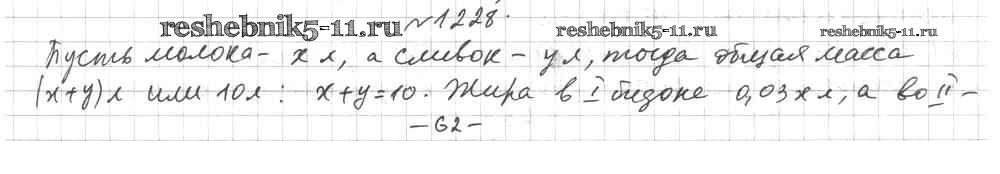 reshebnik5-11.ru №1228. reshebnik5-11.ru reshebnik5-11.ru
Пусть молока - х л, а сливок - у л, тогда общая масса
(х+у)л или 10л : х+у=10. Жира в I бидоне 0,03х л, а во II -
- 62 -